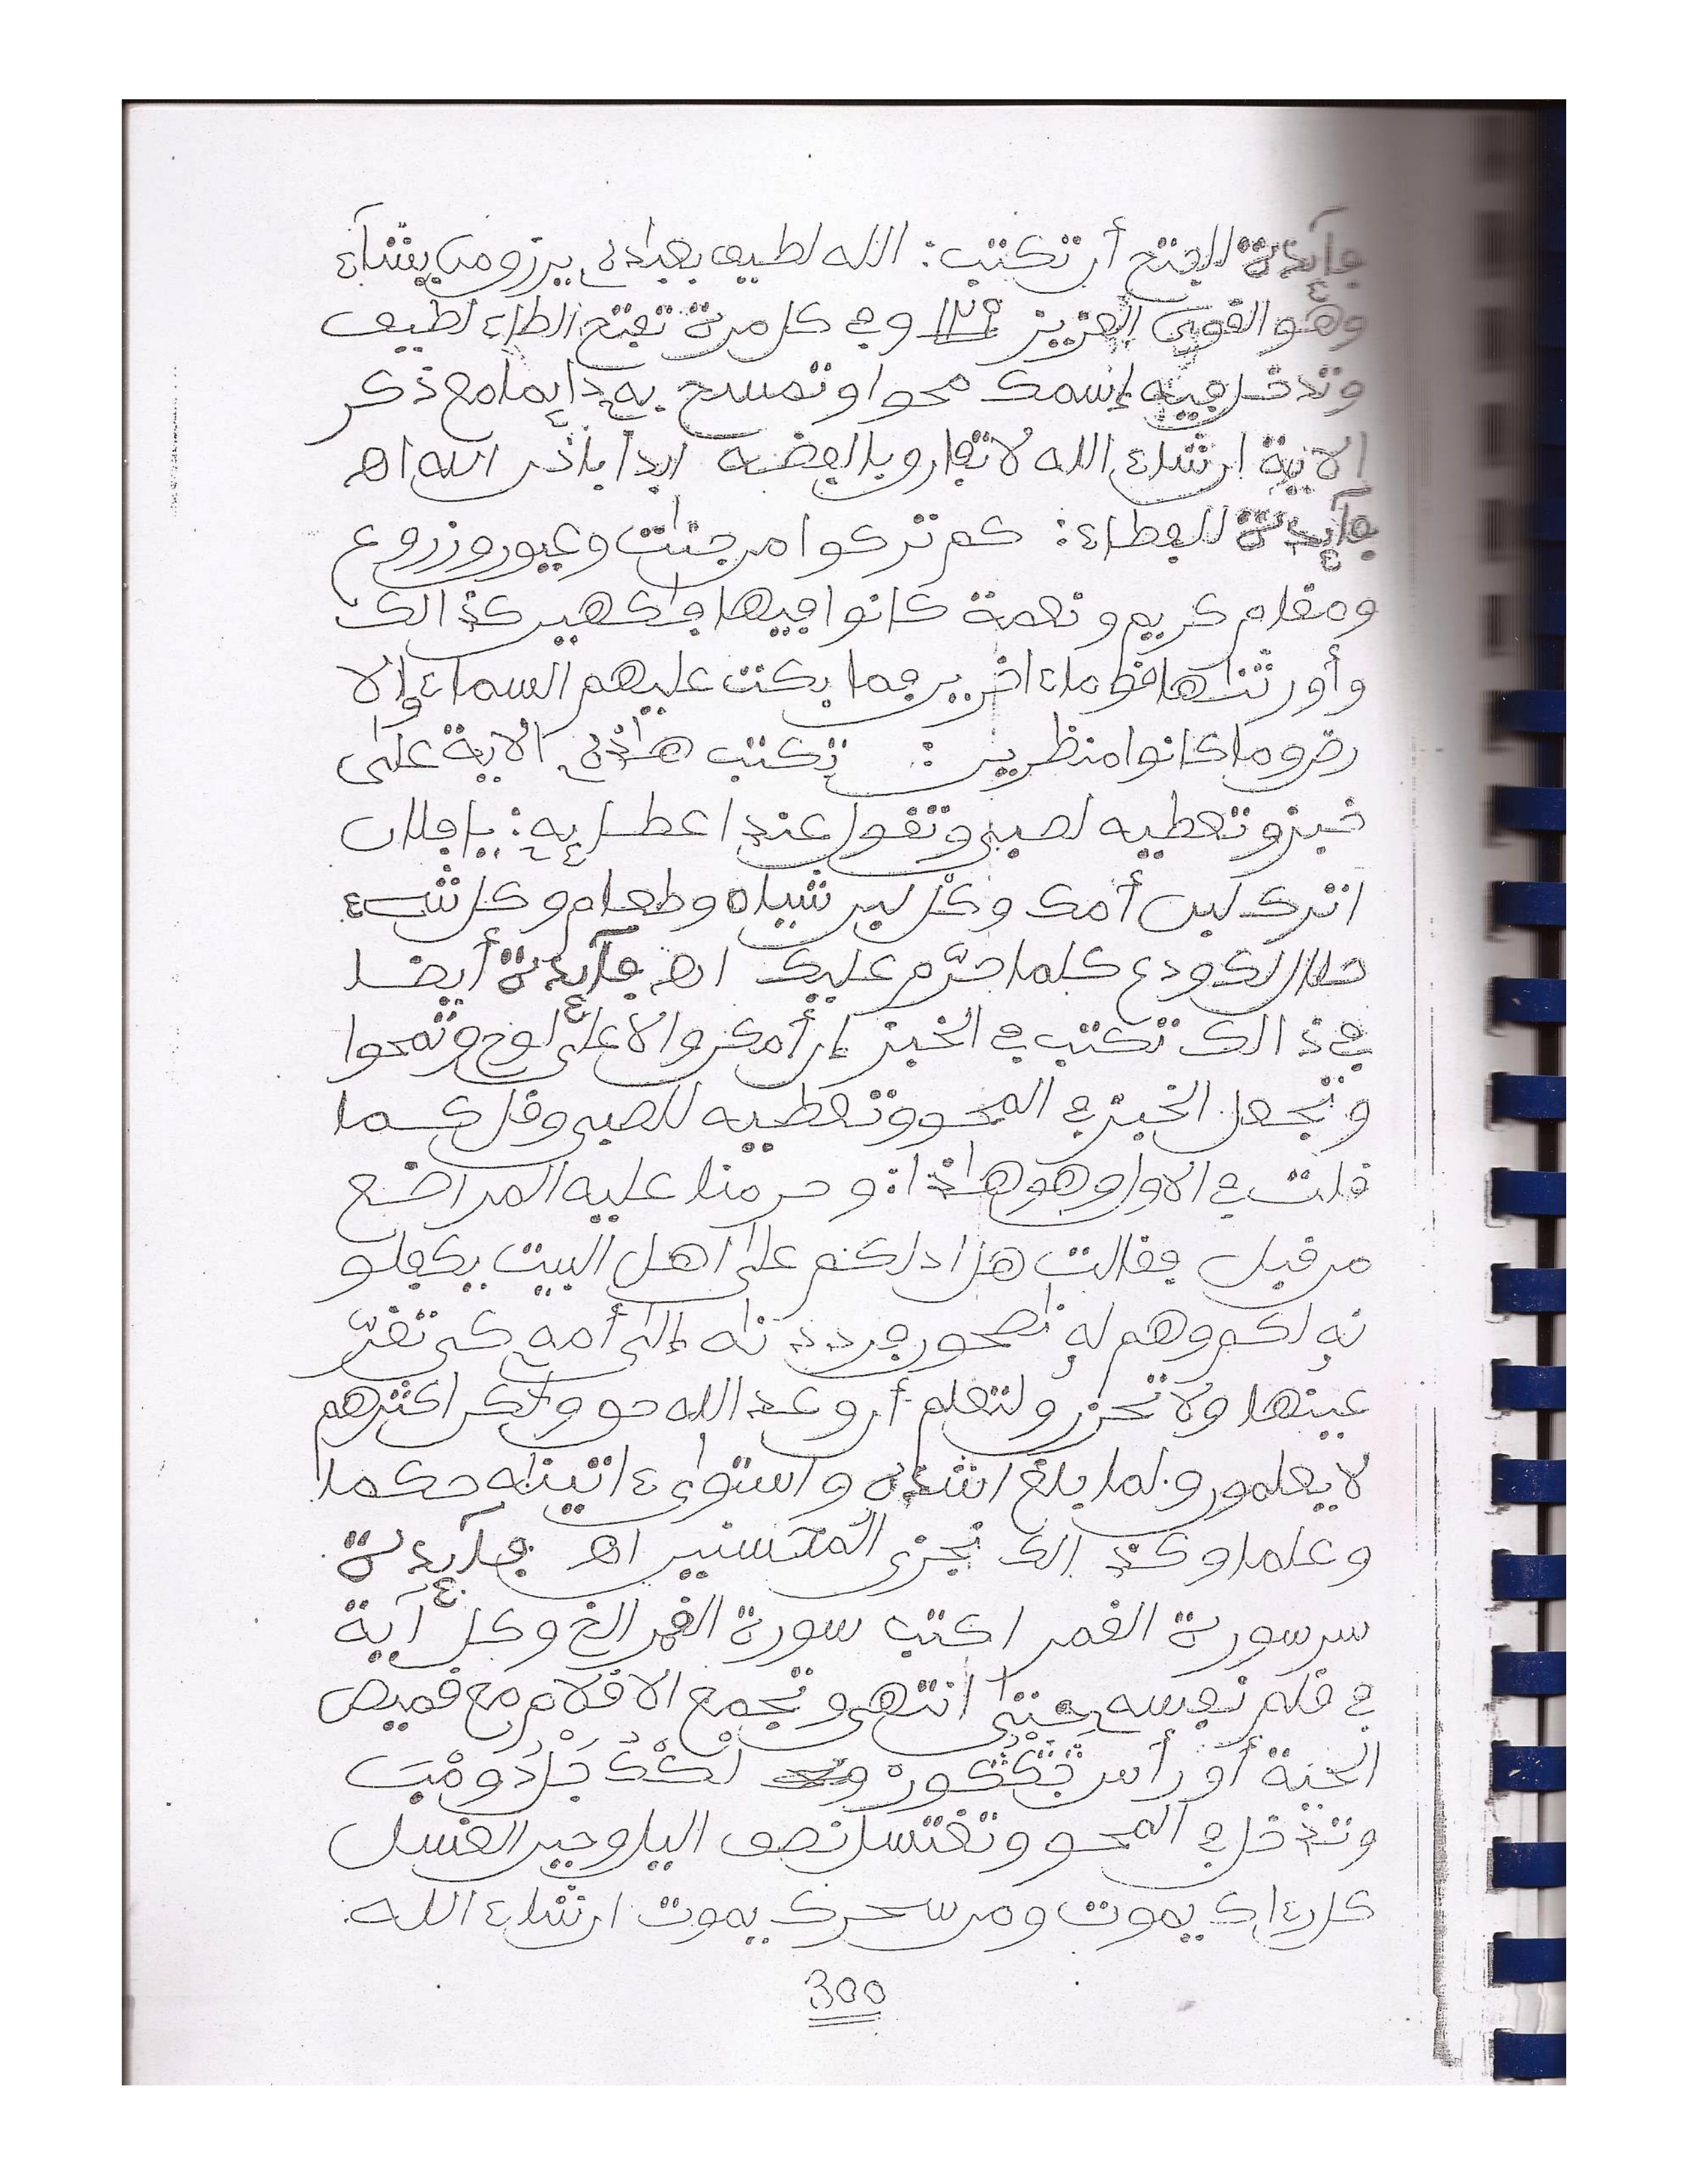 فآئدة للفتح أن تكتب: الله لطيف بعباده يرزق من يشآء
وهو القوي العزيز ١٢٩ وفي كل مرة تفتح الطاء لطيف
وتدخل فيه إسمك محوا وتمسح به دائما مع ذكر
الاية ان شاء الله لا تفارق بالفضة ابدا بإذن الله اهـ
فآئدة للفطاء: كم تركوا من جنات وعيون وزروع
ومقام كريم ونعمة كانوا فيها فاكهين كذالك
وأورثناها قوما ءاخرين فما بكت عليهم السماء والا
رض وما كانوا منظرين: تكتب هاذه الاية على
خبز وتعطيه لصبي وتقول عند اعطايه: يا فلان
اترك لبن أمك وكل لبن شياه وطعام وكل شيء
حلال لك ودع كلما حرّم عليك اهـ فآئدة أيضا
في ذالك تكتب في الخبز إن أمكن والا على لوح وتمحوا
وتجعل الخبز في المحو وتعطيه للصبي وقل كما
قلت في الاول وهو هاذا: وحرمنا عليه المراضع
من قبل فقالت هل ادلكم على اهل البيت يكفلو
نه لكم وهم له ناصحون فرددناه إلى أمه كي تقرّ
عينها ولا تحزن ولتعلم أن وعد الله حق ولاكن اكثرهم
لا يعلمون ولما بلغ اشده واستوى ءاتيناه حكما
وعلما وكذالك نجزي المحسنين اهـ فآئدة
سر سورة القمر اكتب سورة القمر الخ وكل آية
في قلم نفسه حتى انتهى وتجمع الاقلام مع قميص
الحية أو رأس
وتدخل في المحو وتغتسل نصف اليل وحين الغسل
كل داء ك يموت ومن سحرك يموت ان شاء الله
300